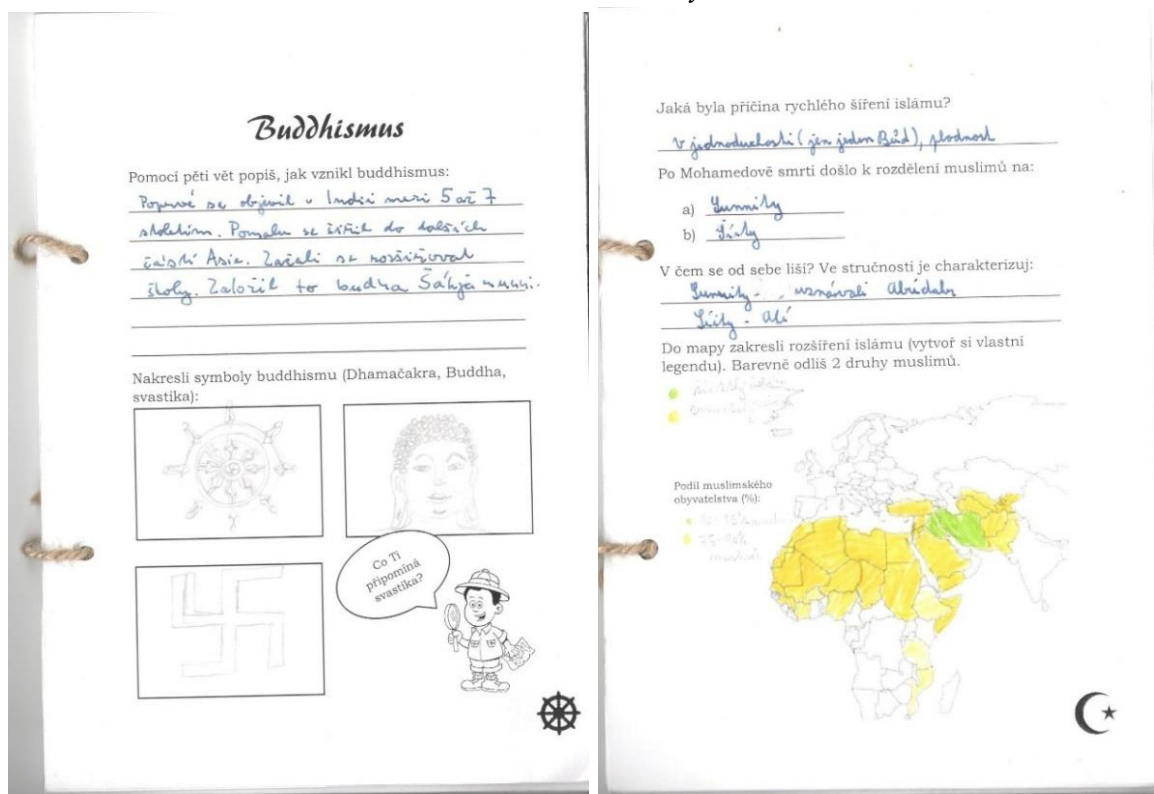 Buddhismus
Pomocí pěti vět popiš, jak vznikl buddhismus:
Poprvé se objevil v Indii mezi 5 až 7
stoletím. Pomalu se šířil do dalších
částí Asie. Začali se rozšiřovat
školy. Založil to budha Šákja muni.
Nakresli symboly buddhismu (Dhamačakra, Buddha,
svastika):
Co Ti
připomíná
svastika?
Jaká byla příčina rychlého šíření islámu?
V jednoduchosti (jen jeden Bůh), plodnost
Po Mohamedově smrti došlo k rozdělení muslimů na:
a) Sunnity
b) Šíity
V čem se od sebe liší? Ve stručnosti je charakterizuj:
Sunnity - uznávali
Šíity - Alí
Do mapy zakresli rozšíření islámu (vytvoř si vlastní
legendu). Barevně odliš 2 druhy muslimů.
Podíl muslimského
obyvatelstva (%):